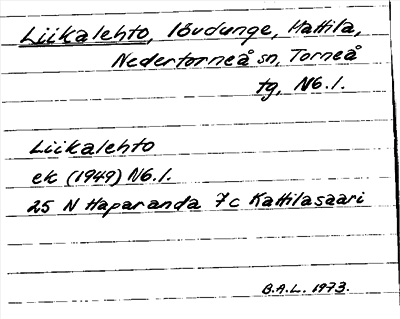 Liikalehto, lövdunge, Mattila,
Nedertorneå sn, Torneå
tg, Nb.l.
Liikalehto
ek (1949) Nb.l.
25 N Haparanda 7c Kattilasaari
B.A.L. 1973.